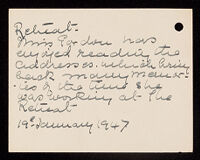 Retreat.
Miss Gordon has
enjoyed reading the
addresses which bring
back many memor-
ies of the time she
was working at the
Retreat
19th January 1947